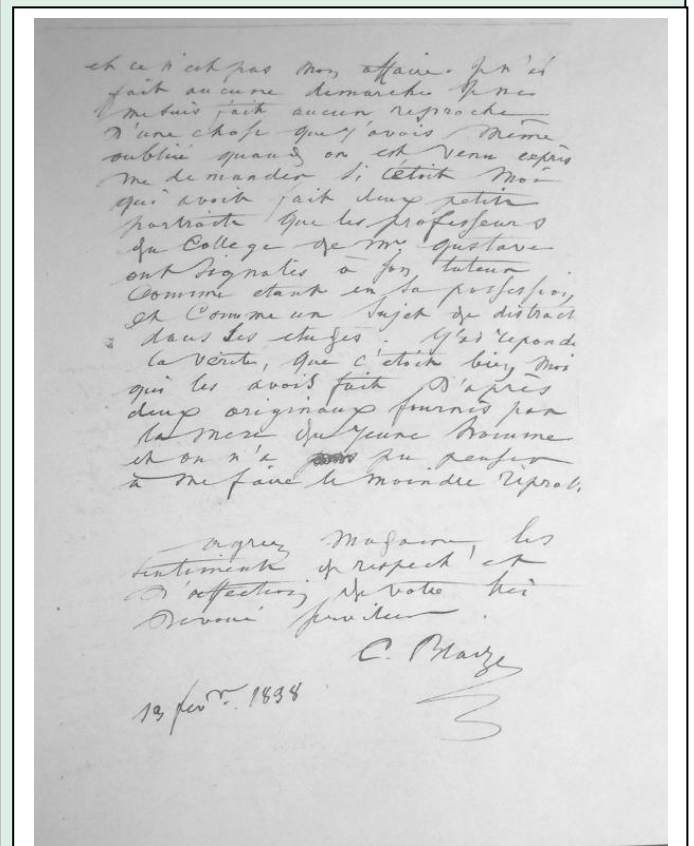 et ce n'est pas mon affaire. je n'ai
fait aucune demarche je ne
me suis fait aucun reproche
d'une chose que j'avois même
oublié quand on est venu exprès
me demander si c'étoit moi
qui avoit fait deux petits
portraits que les professeurs
du College de Mr gustave
ont signalés à son tuteur
Comme etant en sa possession,
et Comme un sujet de distract
dans ses etudes. j'ai repondu
la vérité, que c'étoit bien moi
qui les avois fait d'après
deux originaux fournis par
la mere du jeune homme
et on n'a pu penser
à me faire le moindre reproc.
agréez Madame, les
sentiments de respect et
d'affection de votre très
devoué serviteur.
C. Blaize
13 fevr. 1838